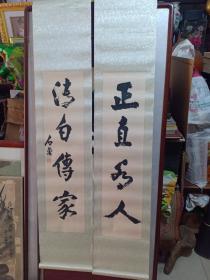 正直為人
清白傳家